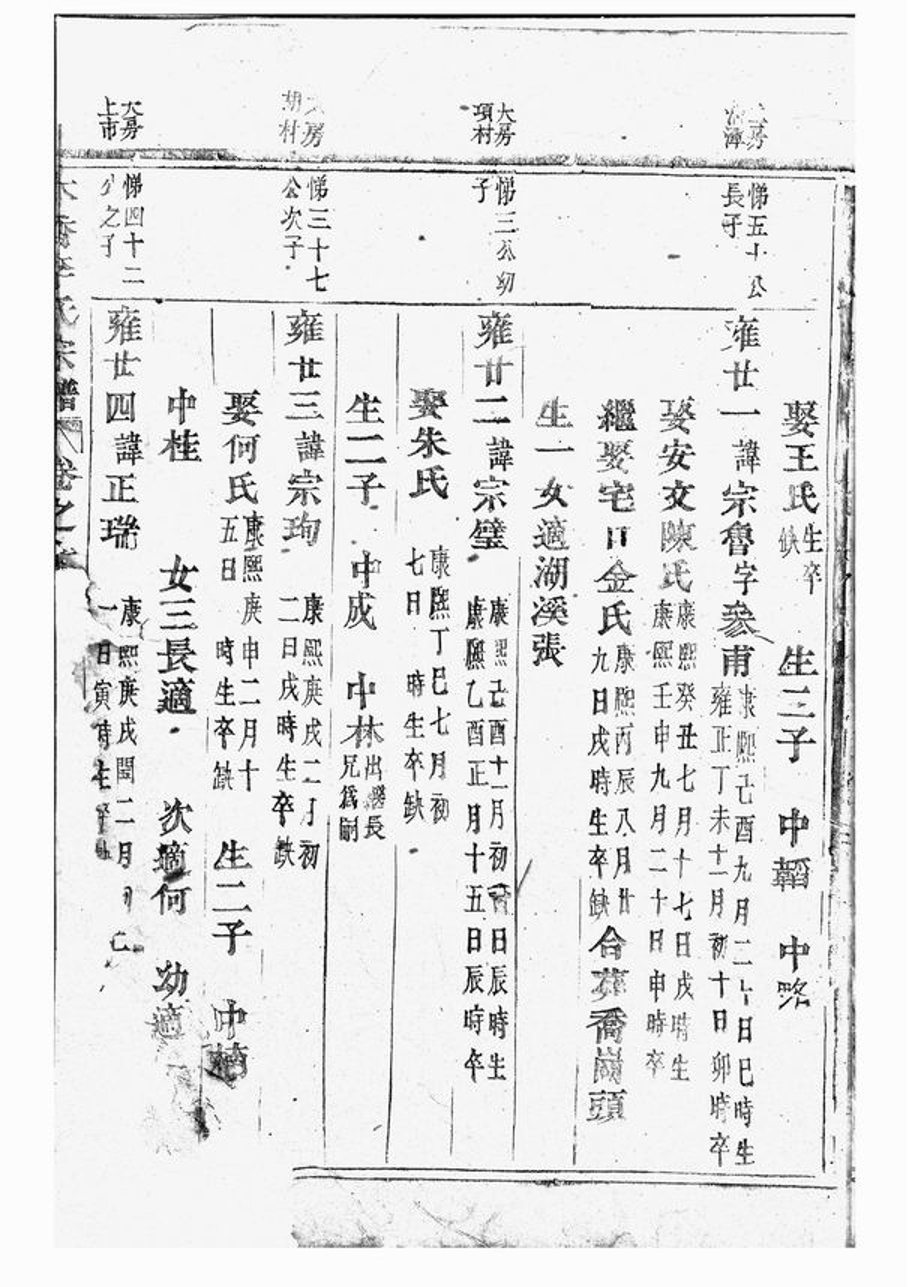 娶王氏 生卒缺 生三子 中韜 中略
大房
悌五十公
長子
雍廿一諱宗魯字參甫 康熙己酉九月二十日巳時生
雍正丁未十一月初十日卯時卒
娶安文陳氏 康熙癸丑七月十七日戌時生
康熙壬申九月二十日申時卒
繼娶宅口金氏 康熙丙辰八月廿
九日戌時生卒缺 合葬喬嶺頭
生一女適湖溪張
大房
項村
悌三公幼
子
雍廿二諱宗璧 康熙己酉十一月初日辰時生
康熙乙酉正月十五日辰時卒
娶朱氏 康熙丁巳七月初
七日 時生卒缺
生二子 中成 中林 出繼長
兄為嗣
大房
胡村
悌三十七
公次子
雍廿三諱宗珣 康熙庚戌二月初
二日戌時生卒缺
娶何氏 康熙庚申二月十
五日 時生卒缺 生二子 中
中桂 女三長適 次適何 幼適
大房
上市
悌四十二
公之子
雍廿四諱正瑞 康熙庚戌閏二月
一日寅時生
氏宗譜 卷之